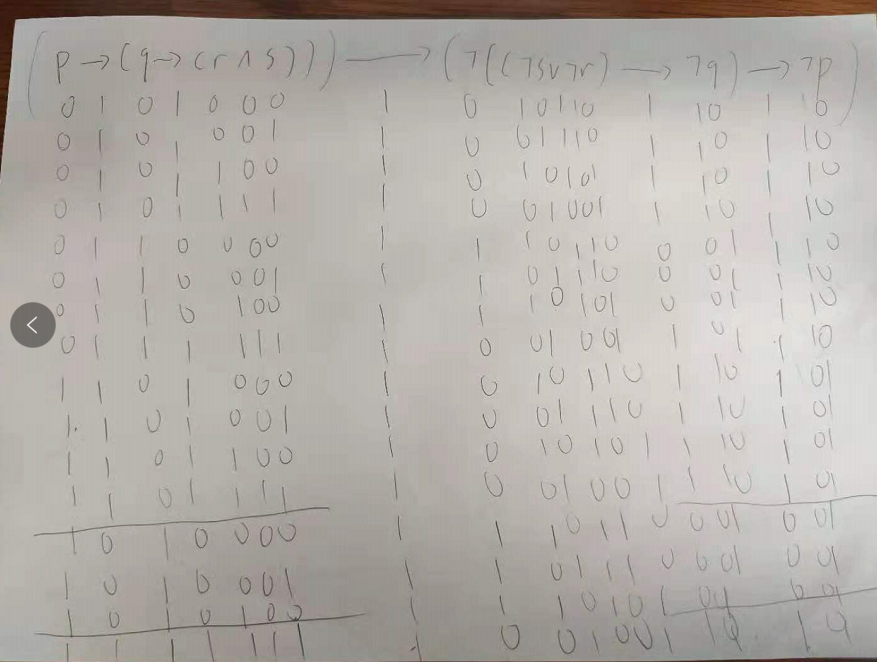 (P→(q→(r∧s))) → (¬((¬s∨¬r) → ¬q) → ¬p)
0 1 0 1 0 0 0 1 0 10110 1 10 1 10
0 1 0 1 0 0 1 1 0 01110 1 10 1 10
0 1 0 1 1 0 0 1 0 10101 1 10 1 10
0 1 0 1 1 1 1 1 0 01001 1 10 1 10
0 1 1 0 0 0 0 1 1 10110 0 01 1 10
0 1 1 0 0 0 1 1 1 01110 0 01 1 10
0 1 1 0 1 0 0 1 1 10101 0 01 1 10
0 1 1 1 1 1 1 1 0 01001 1 01 1 10
1 1 0 1 0 0 0 1 0 10110 1 10 1 01
1 1 0 1 0 0 1 1 0 01110 1 10 1 01
1 1 0 1 1 0 0 1 0 10101 1 10 1 01
1 1 0 1 1 1 1 1 0 01001 1 10 1 01
1 0 1 0 0 0 0 1 1 10110 0 01 0 01
1 0 1 0 0 0 1 1 1 01110 0 01 0 01
1 0 1 0 1 0 0 1 1 10101 01 0 01
1 1 1 1 1 1 1 1 0 01001 1